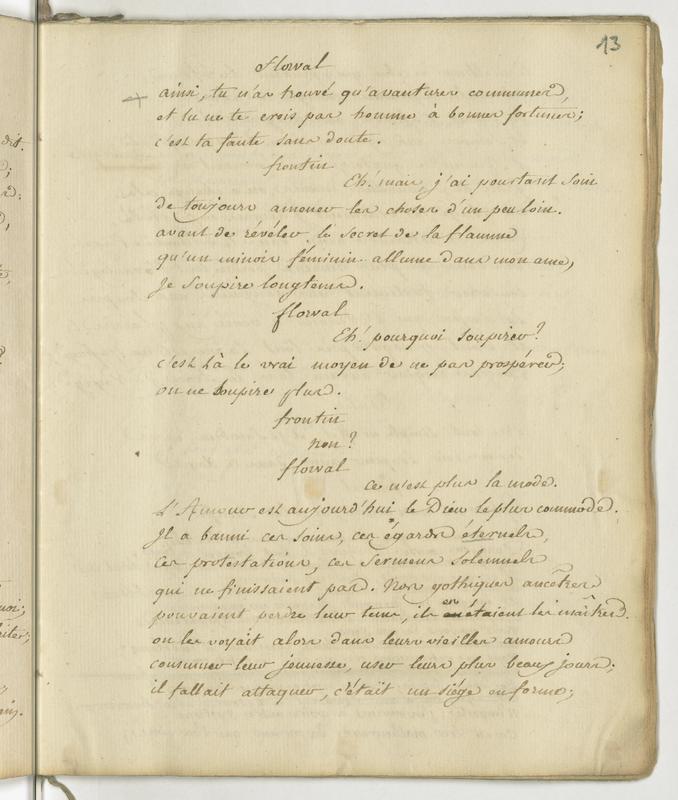 13
florval
ainsi, tu n'as trouvé qu'avantures communes,
et tu ne te crois pas homme à bonnes fortunes;
c'est ta faute sans doute.
frontin
Eh! mais, j'ai pourtant soin
de toujours amener les choses d'un peu loin.
avant de révéler le secret de la flamme
qu'un minois féminin allume dans mon ame,
je soupire longtems.
florval
Eh! pourquoi soupirer?
c'est là le vrai moyen de ne pas prospérer;
on ne soupire plus.
frontin
non?
florval
ce n'est plus la mode.
L'Amour est aujourd'hui le Dieu le plus commode.
Il a banni ces soins, ces égards éternels,
ces protestations, ces sermens solemnels
qui ne finissaient pas. Nos gothiques ancêtres
pouvaient perdre leur tems, ils en étaient les maîtres.
on les voyait alors dans leurs vieilles amours
consumer leur jeunesse, user leurs plus beaux jours;
il fallait attaquer, c'était un siége en forme;
dit.
quoi;